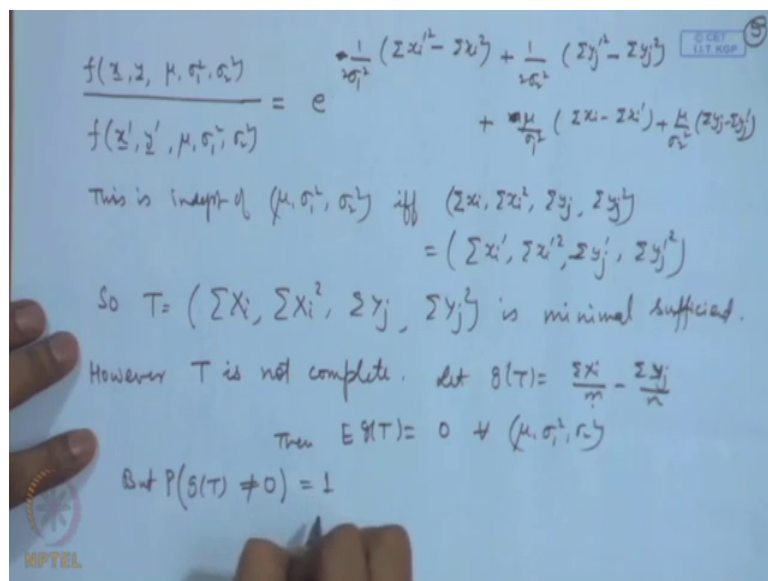 5
© CET
I.I.T. KGP
f(x, y, μ, σ₁², σ₂²) / f(x', y', μ, σ₁², σ₂²) = e^{-1/2σ₁² (Σxi'² - Σxi²) + 1/2σ₂² (Σyj'² - Σyj²)
+ μ/σ₁² (Σxi - Σxi') + μ/σ₂² (Σyj - Σyj')}
This is indept of (μ, σ₁², σ₂²) iff (Σxi, Σxi², Σyj, Σyj²)
= (Σxi', Σxi'², Σyj', Σyj'²)
So T = (ΣXi, ΣXi², ΣYj, ΣYj²) is minimal sufficient.
However T is not complete. Let g(T) = ΣXi/m - ΣYj/n
Then E g(T) = 0 ∀ (μ, σ₁², σ₂²)
But P(g(T) ≠ 0) = 1
NPTEL